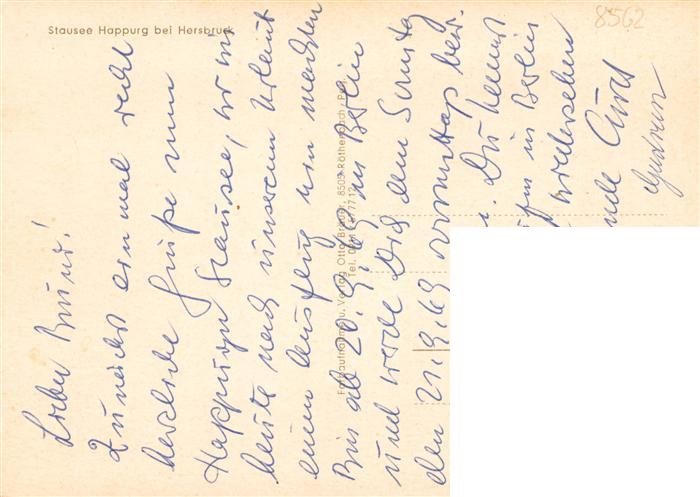 Stausee Happurg bei Hersbruck
8562
Lieber Bruno!
Zunächst einmal recht
herzliche Grüße vom
Happurger Stausee, wo wir
heute nach unserem Urlaub
einen Ausflug hin machten
Bin ab 20.9.69 in Berlin
und werde Dich den Sonntag
den 21.9.69 vormittag bes.
Du kannst
in Berlin
wiedersehen
Curt
Farbaufnahme u. Verlag Otto Bräuer, 8505 Röthenbach, Peg.
Tel.